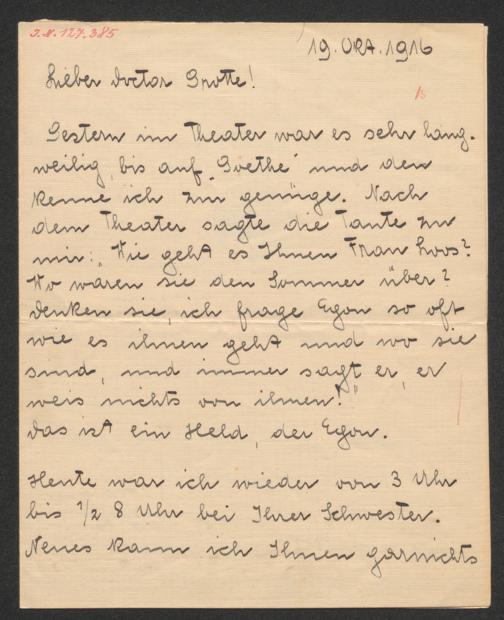 I.N. 127.385
19. Okt. 1916
Lieber Doctor Grotte!
B
Gestern im Theater war es sehr lang-
weilig, bis auf „Goethe" und den
kenne ich zur genüge. Nach
dem Theater sagte die Tante zu
mir: „Wie geht es Ihnen Frau Loos?
Wo waren sie den Sommer über?
denken sie, ich frage Egon so oft
wie es ihnen geht und wo sie
sind, und immer sagt er, er
weis nichts von ihnen!"
das ist ein Held, der Egon.
Heute war ich wieder von 3 Uhr
bis 1/2 8 Uhr bei Ihrer Schwester.
Neues kann ich Ihnen garnichts